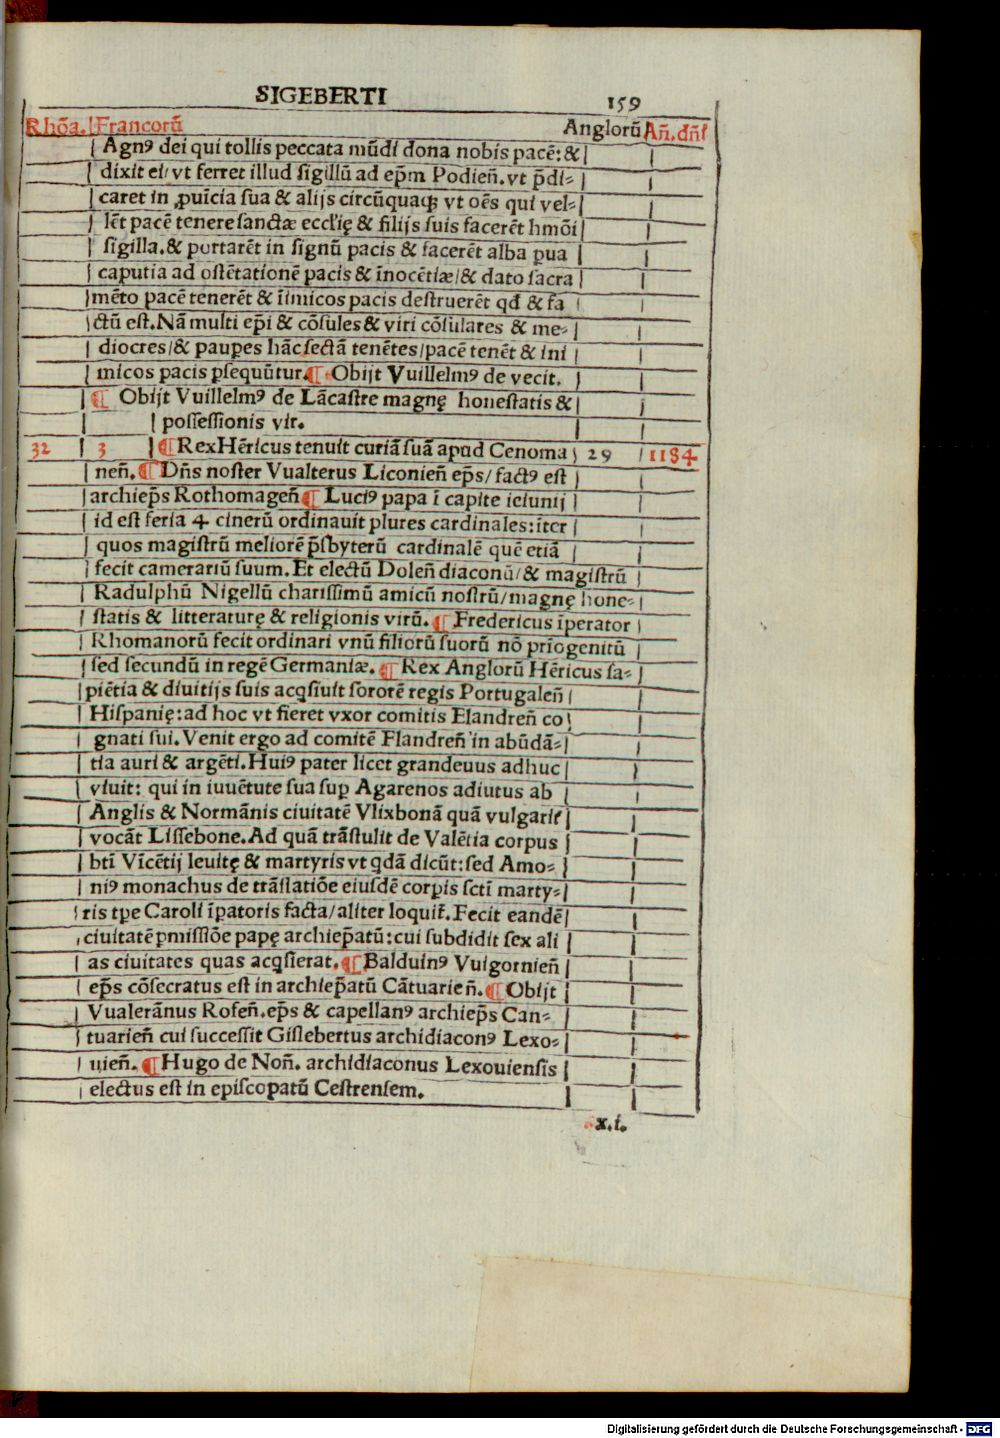 SIGEBERTI 159
Rhōa. Francorū Anglorū Añ.dñí
Agnꝰ dei qui tollis peccata mūdi dona nobis pacē: &
dixit ei/vt ferret illud sigillū ad ep̄m Podień.vt p̄di-
caret in ꝓuīcia sua & alijs circūquaqꝫ vt oēs qui vel-
lēt pacē tenere sanctæ eccl'ię & filijs suis facerēt hmōi
sigilla.& portarēt in signū pacis & facerēt alba ꝑua
caputia ad ostētationē pacis & īnocētiæ/& dato sacra
mēto pacē tenerēt & īimicos pacis destruerēt qđ & fa
ctū est.Nā multi ep̄i & cōsules & viri cōsulares & me-
diocres/& pauꝑes hāc sectā tenētes/pacē tenēt & ini
micos pacis ꝑsequūtur.¶ Obijt Vuillelmꝰ de vecit.
¶ Obijt Vuillelmꝰ de Lācastre magnę honestatis &
possessionis vir.
32 3 ¶Rex Hēricus tenuit curiā suā apud Cenoma 29 1184
neñ.¶ Dñs noster Vualterus Liconień ep̄s/factꝰ est
archiep̄s Rothomageñ¶ Luciꝰ papa ī capite ieiunij
id est feria 4 cinerū ordinauit plures cardinales:īter
quos magistrū meliorē p̄sbyterū cardinalē quē etiā
fecit camerariū suum.Et electū Doleñ diaconū/& magistrū
Radulphū Nigellū charissimū amicū nostrū/magnę hone-
statis & litteraturę & religionis virū.¶ Fredericus īperator
Rhomanorū fecit ordinari vnū filiorū suorū nō prīogenitū
sed secundū in regē Germaniæ.¶ Rex Anglorū Hēricus sa-
piētia & diuitijs suis acq̄siuit sororē regis Portugaleñ
Hispanię:ad hoc vt fieret vxor comitis Elandreñ co
gnati sui.Venit ergo ad comitē Flandreñ in abūdā-
tia auri & argēti.Huiꝰ pater licet grandeuus adhuc
viuit: qui in iuuētute sua suꝑ Agarenos adiutus ab
Anglis & Normānis ciuitatē Vlixbonā quā vulgarit̄
vocāt Lissebone.Ad quā trāstulit de Valētia corpus
bt̄i Vīcētij leuitę & martyris vt q̄dā dicūt:sed Amo-
niꝰ monachus de trāslatiōe eiusdē corꝑis sct̄i marty-
ris tꝑe Caroli īꝑatoris facta/aliter loquit̄.Fecit eandē
ciuitatē ꝑmissiōe papę archiep̄atū:cui subdidit sex ali
as ciuitates quas acq̄sierat.¶ Balduinꝰ Vuigornień
ep̄s cōsecratus est in archiep̄atū Cātuarień.¶ Obijt
Vualerānus Rofeñ.ep̄s & capellanꝰ archiep̄s Can-
tuarień cui successit Gislebertus archidiaconꝰ Lexo-
uień.¶ Hugo de Noñ. archidiaconus Lexouiensis
electus est in episcopatū Cestrensem.
x.i.
Digitalisierung gefördert durch die Deutsche Forschungsgemeinschaft - DFG